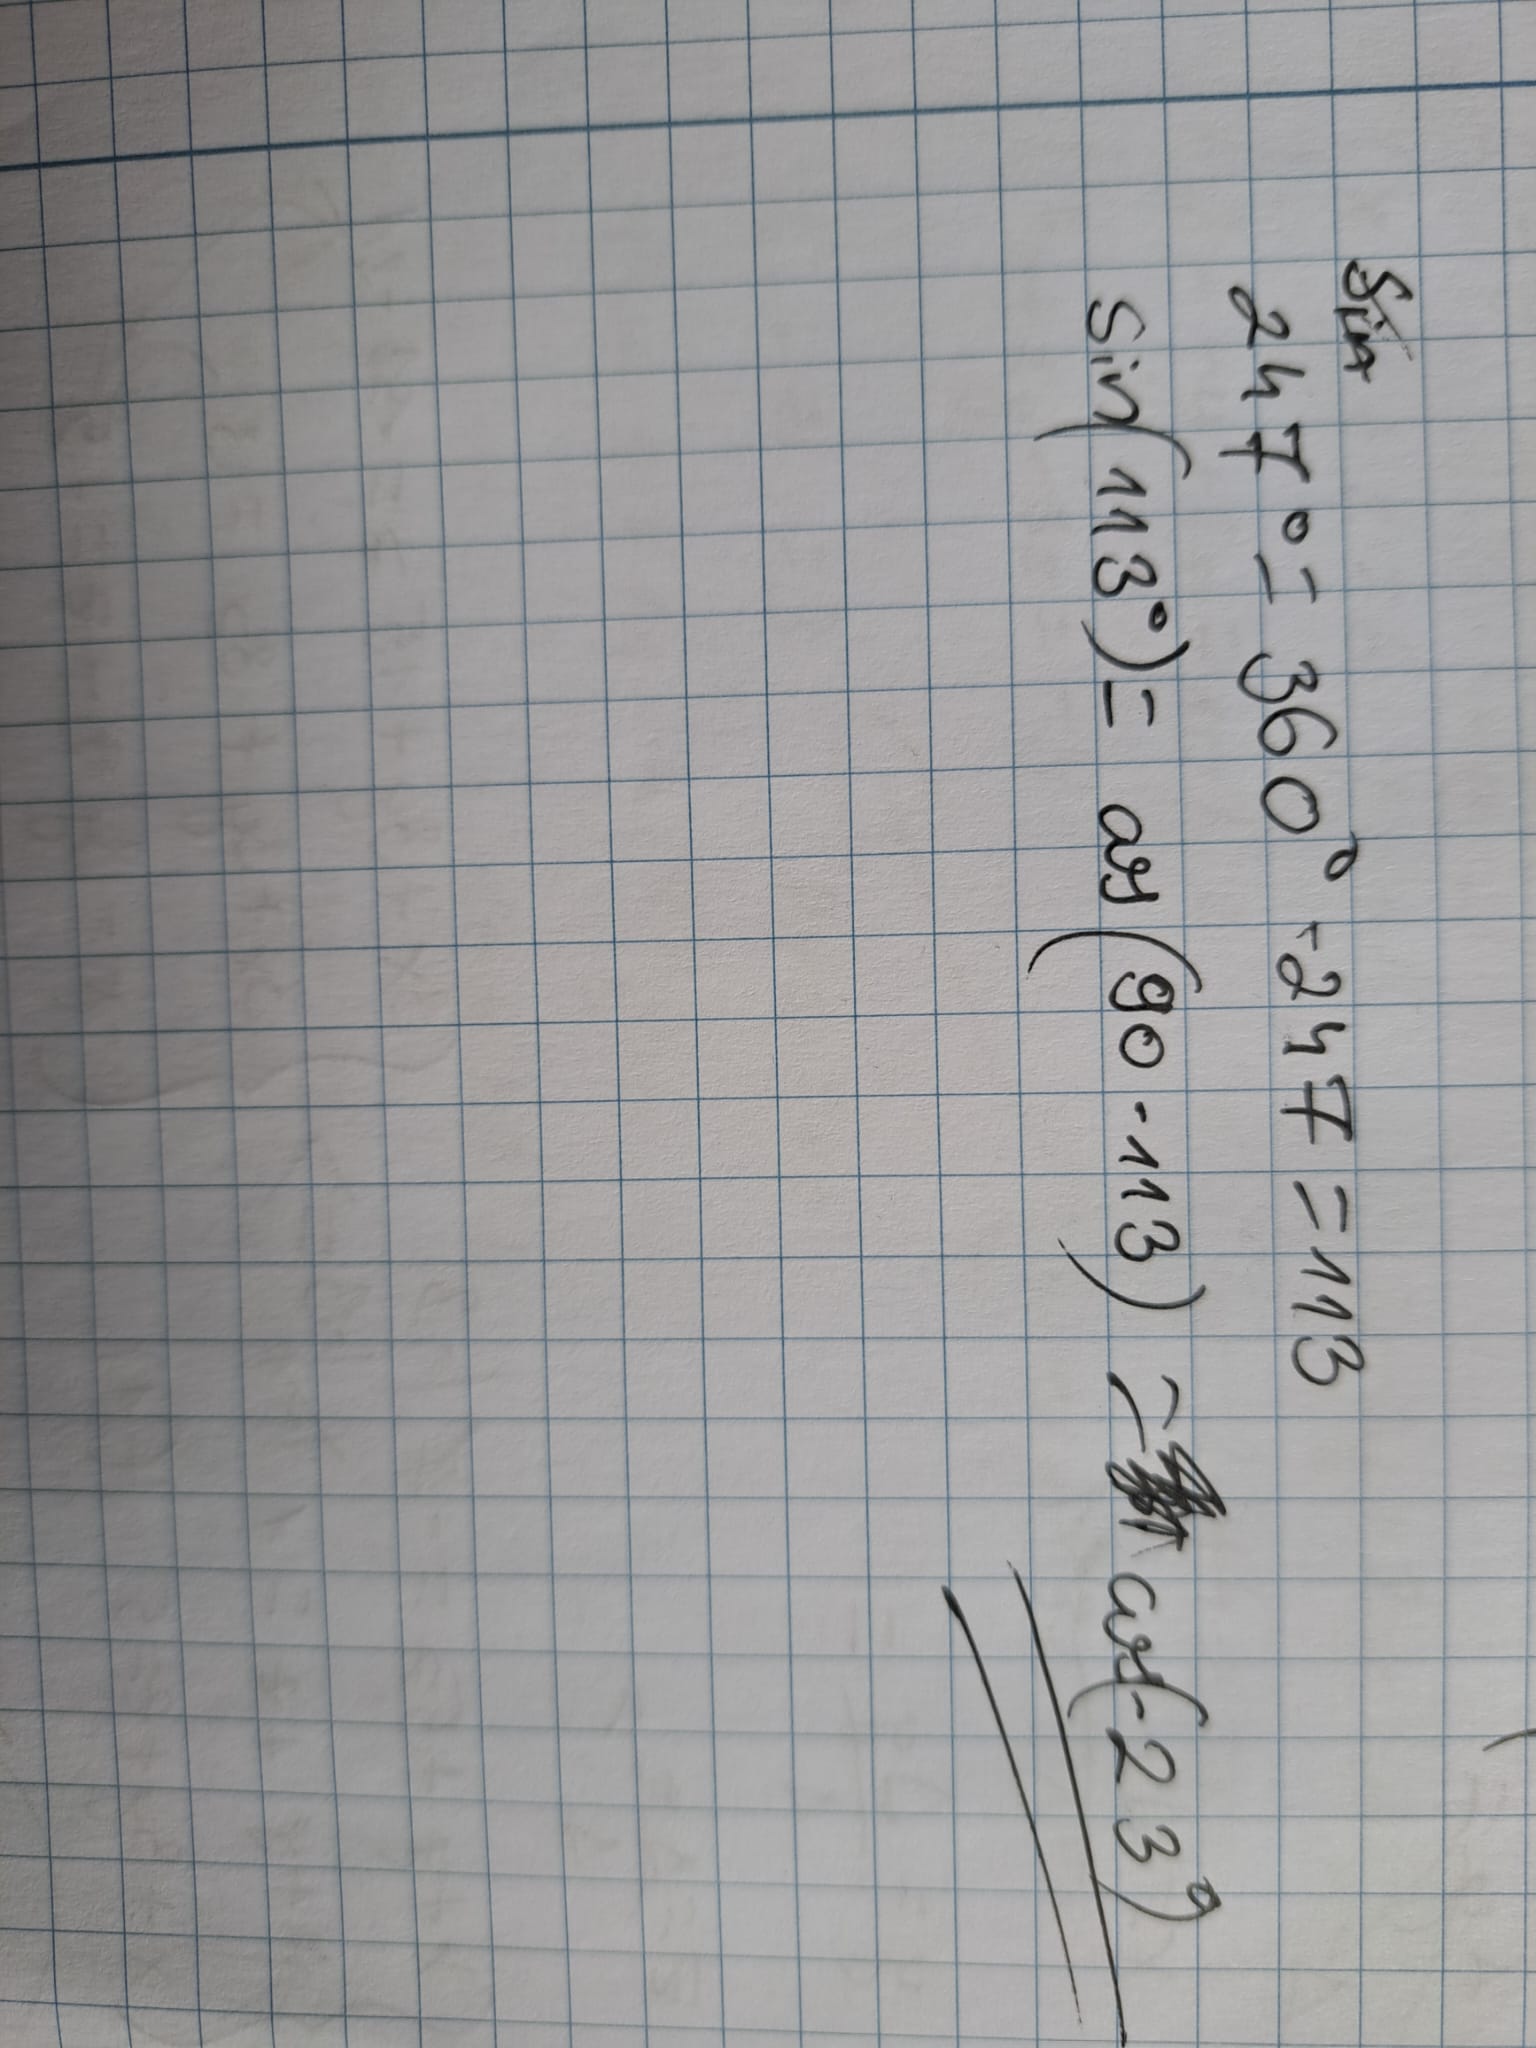 Sin
247° = 360° - 247 = 113
Sin(113°) = cos(90 - 113) = cos(-23°)